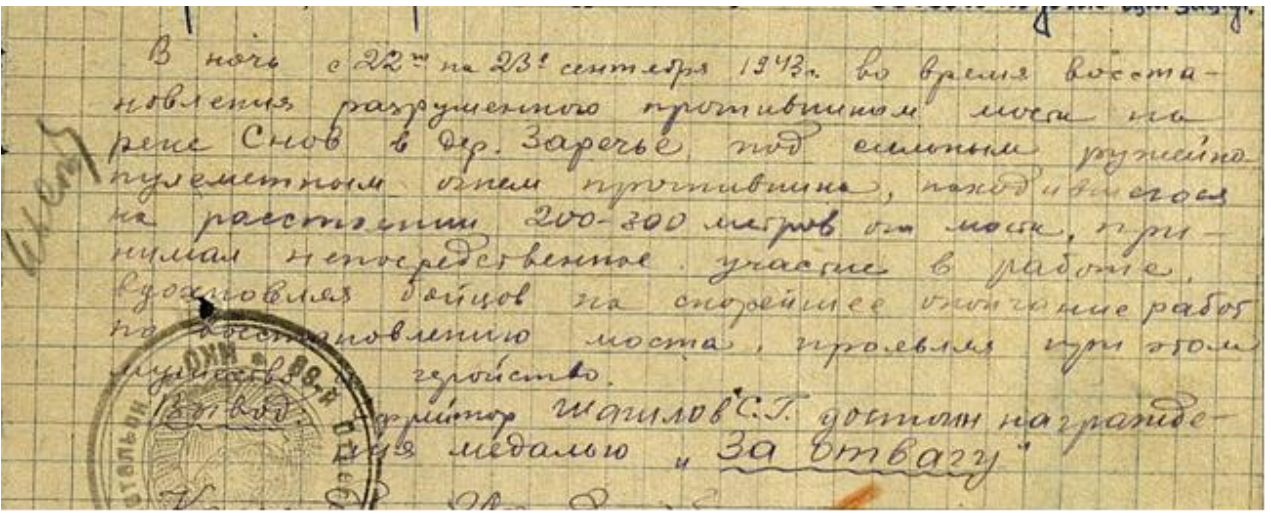 В ночь с 22го на 23е сентября 1943г. во время восста-
новления разрушенного противником моста на
реке Снов в дер. Заречье, под сильным ружейно-
пулеметным огнем противника, находившегося
на расстоянии 200-300 метров от моста, при-
нимал непосредственное участие в работе,
вдохновляя бойцов на скорейшее окончание работ
по восстановлению моста, проявляя при этом
мужество геройство.
Вывод: Ефрейтор Шашлов С.Г. достоин награжде-
ния медалью „За отвагу"
НКО * 69-й Отде
батальон